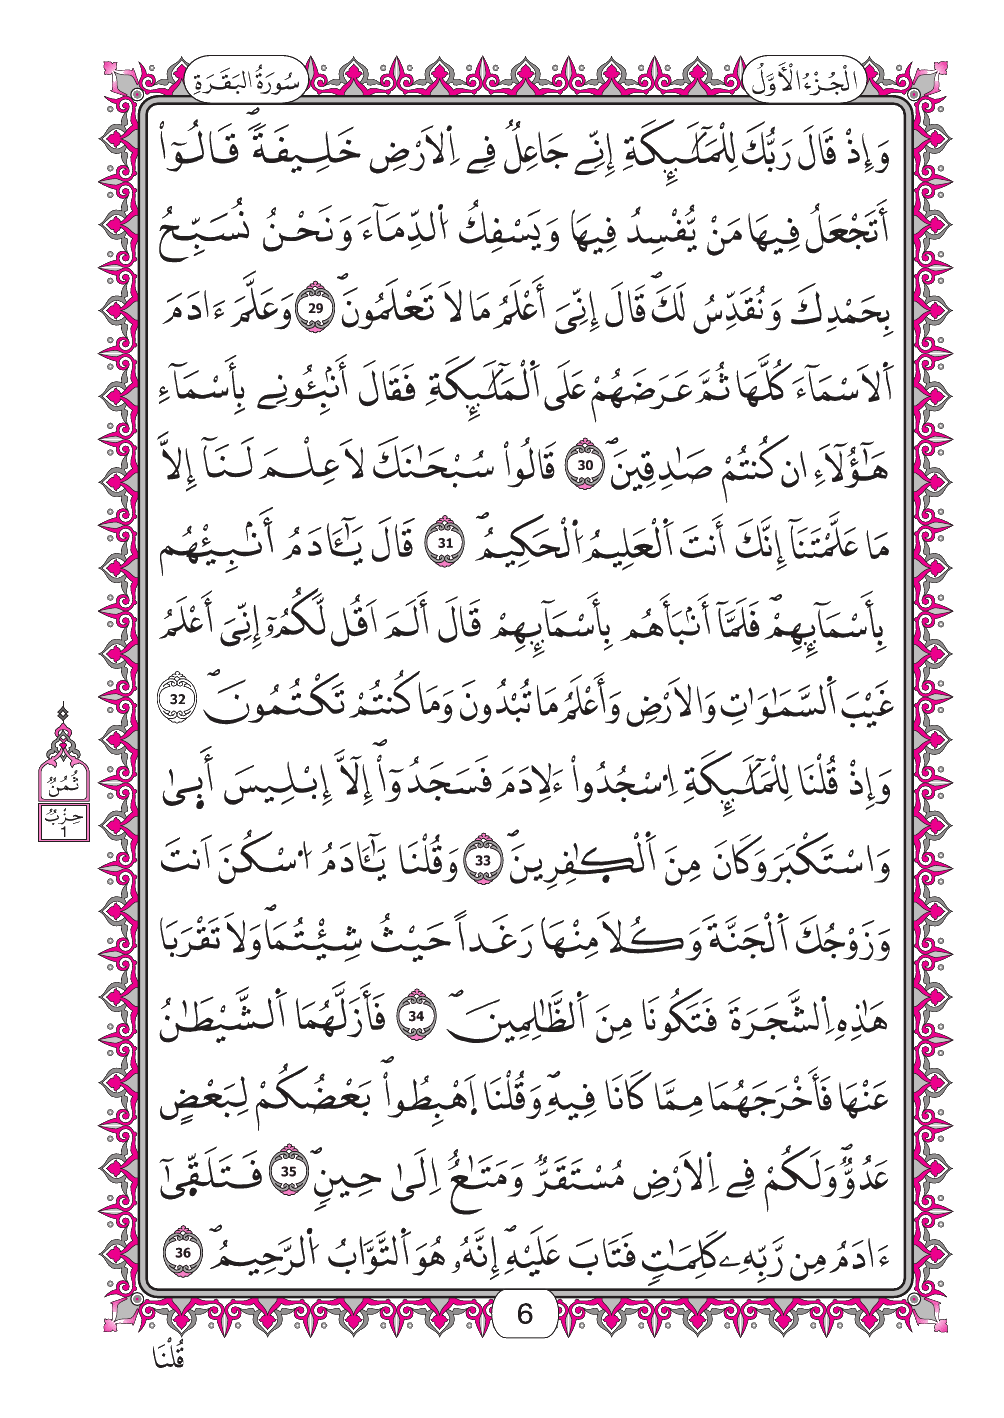 الْجُزْءُ الْأَوَّلُ
سُورَةُ الْبَقَرَةِ
وَإِذْ قَالَ رَبُّكَ لِلْمَلَٰٓئِكَةِ إِنِّے جَاعِلٞ فِے اِ۬لَارْضِ خَلِيفَةٗۖ قَالُوٓاْ
أَتَجْعَلُ فِيهَا مَنْ يُّفْسِدُ فِيهَا وَيَسْفِكُ اُ۬لدِّمَآءَ وَنَحْنُ نُسَبِّحُ
بِحَمْدِكَ وَنُقَدِّسُ لَكَۖ قَالَ إِنِّيَ أَعْلَمُ مَا لَا تَعْلَمُونَۖ 29 وَعَلَّمَ ءَادَمَ
اَ۬لَاسْمَآءَ كُلَّهَا ثُمَّ عَرَضَهُمْ عَلَى اَ۬لْمَلَٰٓئِكَةِ فَقَالَ أَنۢبِـُٔونِے بِأَسْمَآءِ
هَٰٓؤُلَآءِ ان كُنتُمْ صَٰدِقِينَۖ 30 قَالُواْ سُبْحَٰنَكَ لَا عِلْمَ لَنَآ إِلَّا
مَا عَلَّمْتَنَآ إِنَّكَ أَنتَ اَ۬لْعَلِيمُ اُ۬لْحَكِيمُۖ 31 قَالَ يَٰٓـَٔادَمُ أَنۢبِئْهُم
بِأَسْمَآئِهِمْۖ فَلَمَّآ أَنۢبَأَهُم بِأَسْمَآئِهِمْ قَالَ أَلَمَ اَقُل لَّكُمُۥٓ إِنِّيَ أَعْلَمُ
غَيْبَ اَ۬لسَّمَٰوَٰتِ وَالَارْضِ وَأَعْلَمُ مَا تُبْدُونَ وَمَا كُنتُمْ تَكْتُمُونَۖ 32
وَإِذْ قُلْنَا لِلْمَلَٰٓئِكَةِ اِ۟سْجُدُواْ ءَلِادَمَ فَسَجَدُوٓاْۖ إِلَّآ إِبْلِيسَ أَبٜىٰ
وَاسْتَكْبَرَ وَكَانَ مِنَ اَ۬لْكٰٜفِرِينَۖ 33 وَقُلْنَا يَٰٓـَٔادَمُ اُ۟سْكُنَ اَنتَ
وَزَوْجُكَ اَ۬لْجَنَّةَ وَكُلَا مِنْهَا رَغَداً حَيْثُ شِئْتُمَاۖ وَلَا تَقْرَبَا
هَٰذِهِ اِ۬لشَّجَرَةَ فَتَكُونَا مِنَ اَ۬لظَّٰلِمِينَۖ 34 فَأَزَلَّهُمَا اَ۬لشَّيْطَٰنُ
عَنْهَا فَأَخْرَجَهُمَا مِمَّا كَانَا فِيهِۖ وَقُلْنَا اَ۪هْبِطُواْۖ بَعْضُكُمْ لِبَعْضٍ
عَدُوّٞۖ وَلَكُمْ فِے اِ۬لَارْضِ مُسْتَقَرّٞ وَمَتَٰعٌ اِلَىٰ حِينٖۖ 35 فَتَلَقّٜىٰٓ
ءَادَمُ مِن رَّبِّهِۦ كَلِمَٰتٖ فَتَابَ عَلَيْهِۖ إِنَّهُۥ هُوَ اَ۬لتَّوَّابُ اُ۬لرَّحِيمُۖ 36
ثُمُنُ
حِزْبٌ
1
6
قُلْنَا